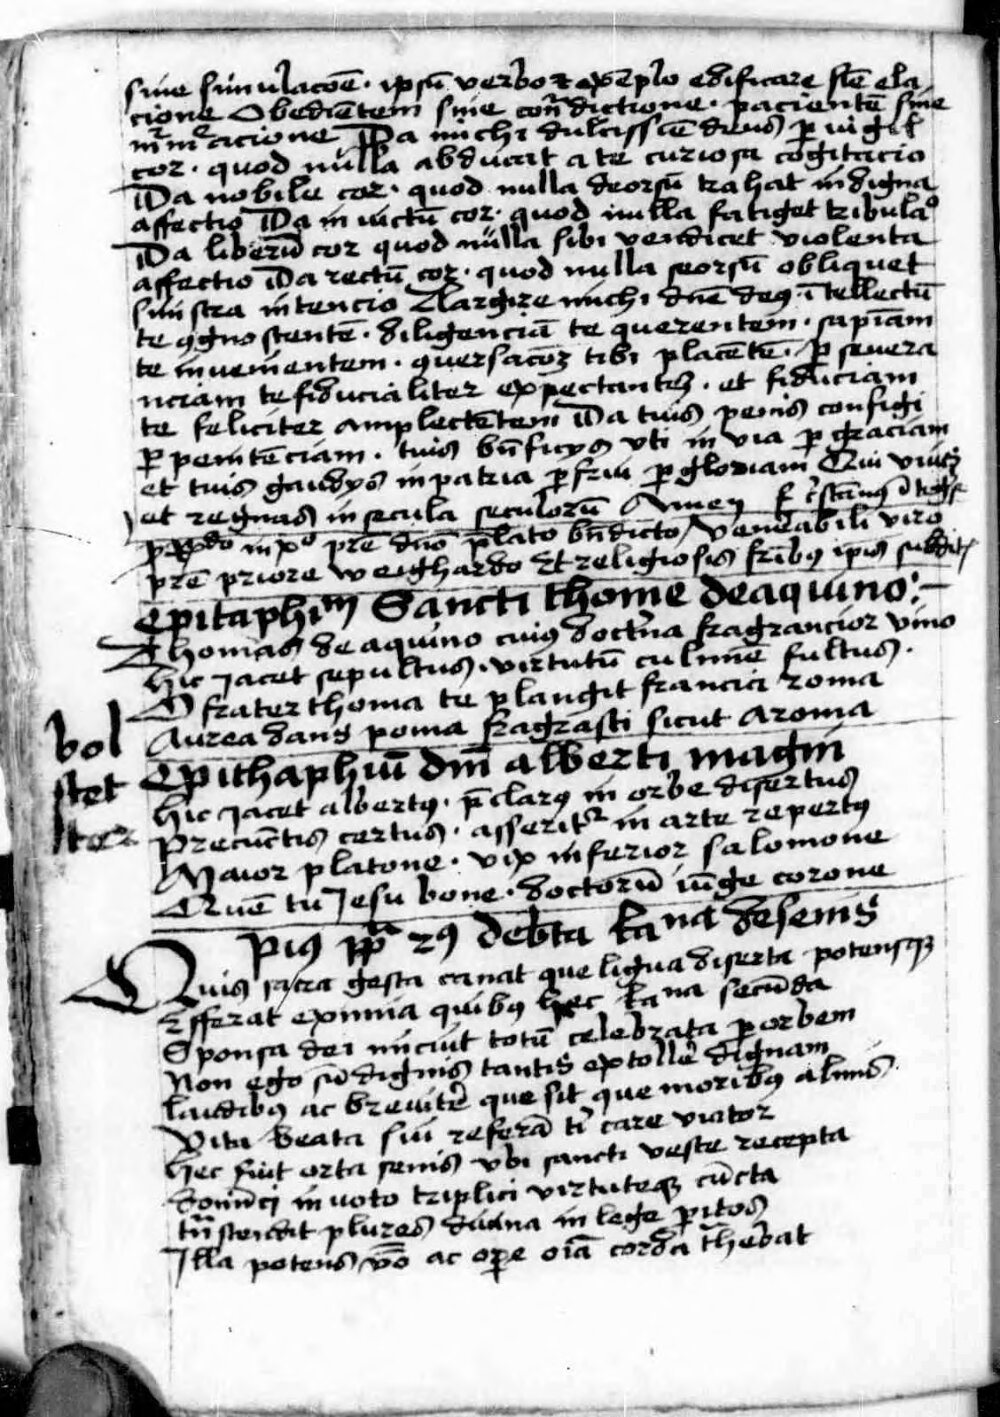 sine simulacōe · ipsū verbo et exēplo edificare sīe ela
cione Obedientem sine con̄dictione · pacientē sine
mr̄mᵉacione Da michi dulcissiē deus ꝑuigil
cor · quod nulla abducat a te curiosa cogitacio
Da nobile cor · quod nulla deorsū trahat indigna
affectio Da inuictū cor · quod nulla fatiget tribulaᵒ
Da liberū cor quod nulla sibi vendicet violenta
affectio Da rectū cor · quod nulla seorsū obliquet
sinistra intencio Largire michi dn̄e deꝰ ītellectū
te ꝯgnoscentē · diligenciā te querentem · sapīam
te inuenientem · ꝯuersacōꝫ tibi placētē · ꝑseuera
nciam te fiducialiter expectantē · et fiduciam
te feliciter amplectētem Da tuis penis configi
ꝑ penitēciam · tuis bn̄ficijs vti in via ꝑ graciam
et tuis gaudijs in patria ꝑfrui ꝑ gloriam Qui viuis
et regnas in secula seculorū Amen
in xᵒ pr̄e dn̄o plato bn̄dicto venerabili viro
pr̄e priore weighardo Et religiosis fr̄ibꝰ ipiˢ subditˢ
Epitaphiᵐ Sancti thome de aquino :-
Thomas de aquino cuiꝰ doctⁱna fragrancior vino
hic Jacet sepultus · virtutū culmīe fultus ·
O frater thoma te plangit francia roma
Aurea dans poma fragrasti sicut aroma
bol
stet
ter
Epithaphiū dn̄i alberti magni
hic Jacet albertꝰ · p̄clarꝰ in orbe disertus
Pre cūctis certus · asseritʳ in arte repertꝰ
Maior platone · vix inferior salomone
Quē tu Jesu bone · doctorū iūge corone
Piꝰ pp̄ 2ꝰ de bta kana de senis
Quis sacra gesta canat que ligua diserta potensqꝫ
Efferat eximia quibꝰ hec kana secūda
Sponsa dei niciut totū celebrata ꝑ orbem
Non ego sū dignis tantis extolle᷒ dignam
laudibꝰ ac breuite᷒ que sit que moribꝰ almis
Vita beata sui referā ti᷒ care viator
hec fuit orta senis vbi sancti veste recepta
domīci in voto triplici virtuteqꝫ cūcta
plures diuina in lege ꝑitos
Illa potens v̄o ac oꝑe oīa corda